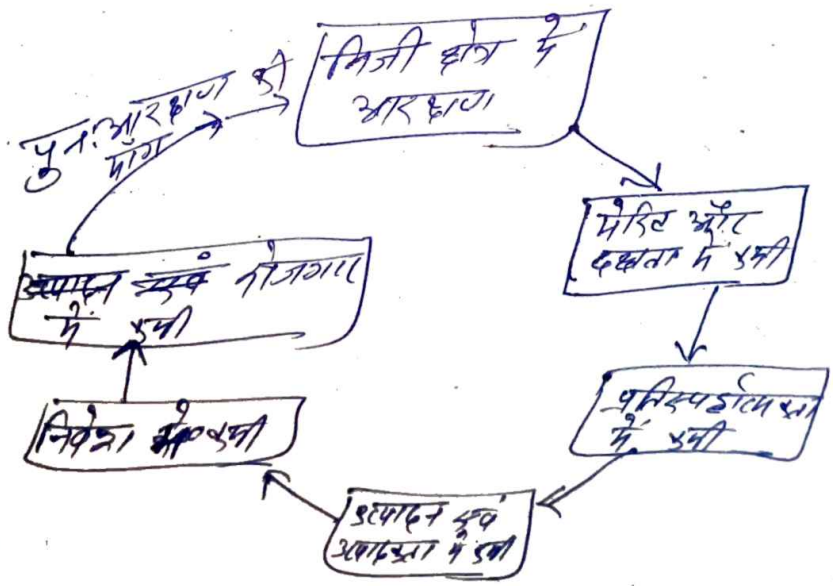 निजी क्षेत्र में
आरक्षण
मेरिट और
दक्षता में कमी
प्रतिस्पर्धात्मकता
में कमी
उत्पादन एवं
उत्पादकता में कमी
निवेश में कमी
रोजगार
में कमी
पुनः आरक्षण की
मांग